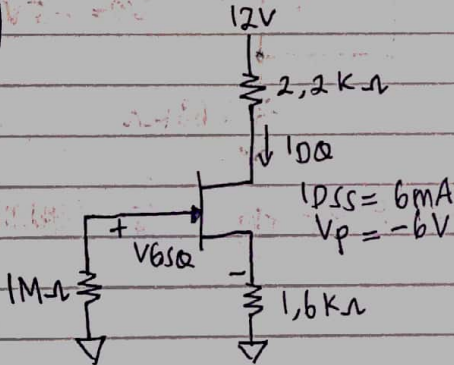 12V
2,2KΩ
IDQ
IDSS = 6mA
Vp = -6V
+
VGSQ
-
1MΩ
1,6KΩ